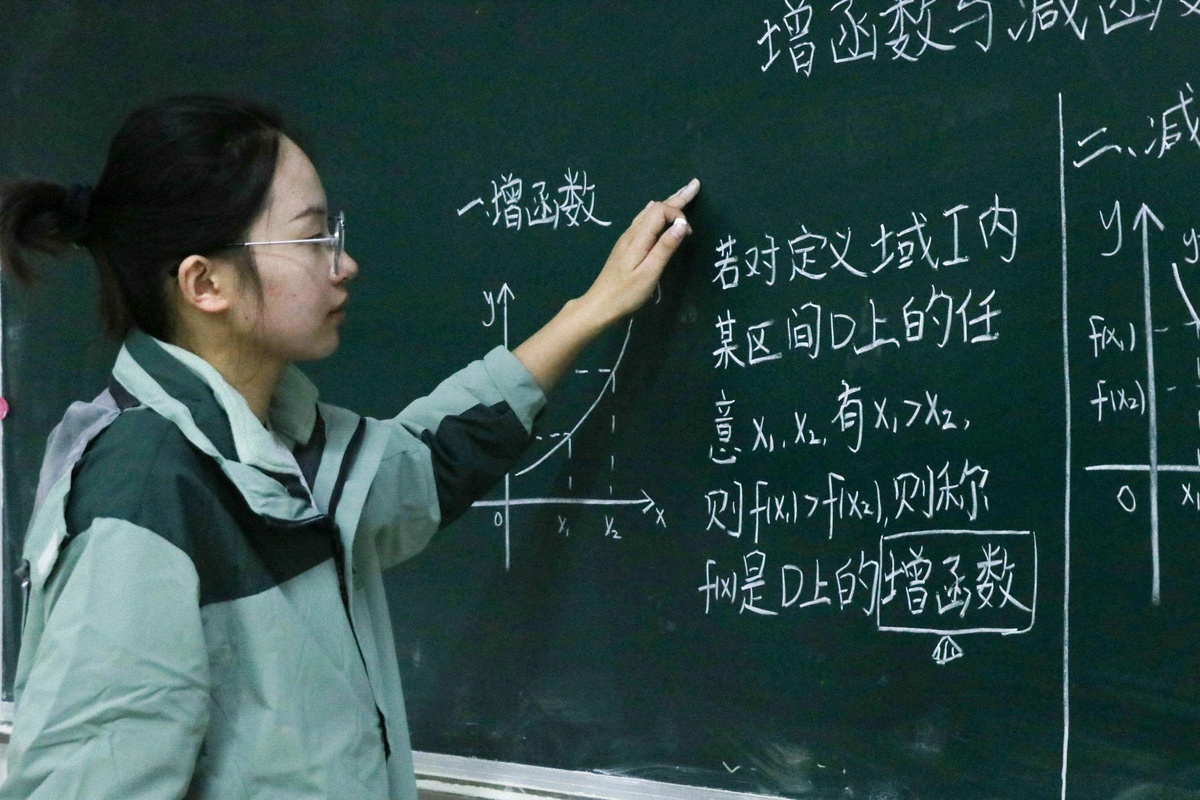 增函数与减函数
一、增函数
y
0
x₁
x₂
x
若对定义域I内
某区间D上的任
意x₁,x₂,有x₁>x₂,
则f(x₁)>f(x₂),则称
f(x)是D上的增函数
二、减
y
y
f(x₁)
f(x₂)
0
x